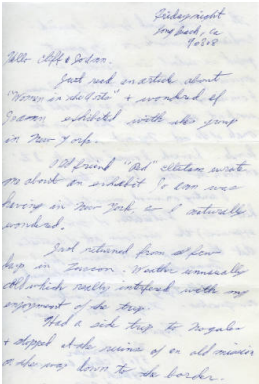 Friday night
Long Beach, Ca
90808
Hello Cliff & Jordan.
Just read an article about
"Women in the Arts" & wondered if
exhibited with the group
in New York.
Old friend "Red" wrote
me about an exhibit was
having in New York, & I naturally
wondered.
Just returned from a few
days in Tucson. Weather unusually
cold which really interfered with my
enjoyment of the trip.
Had a side trip to Nogales
& stopped at the ruins of an old mission
on the way down to the border.